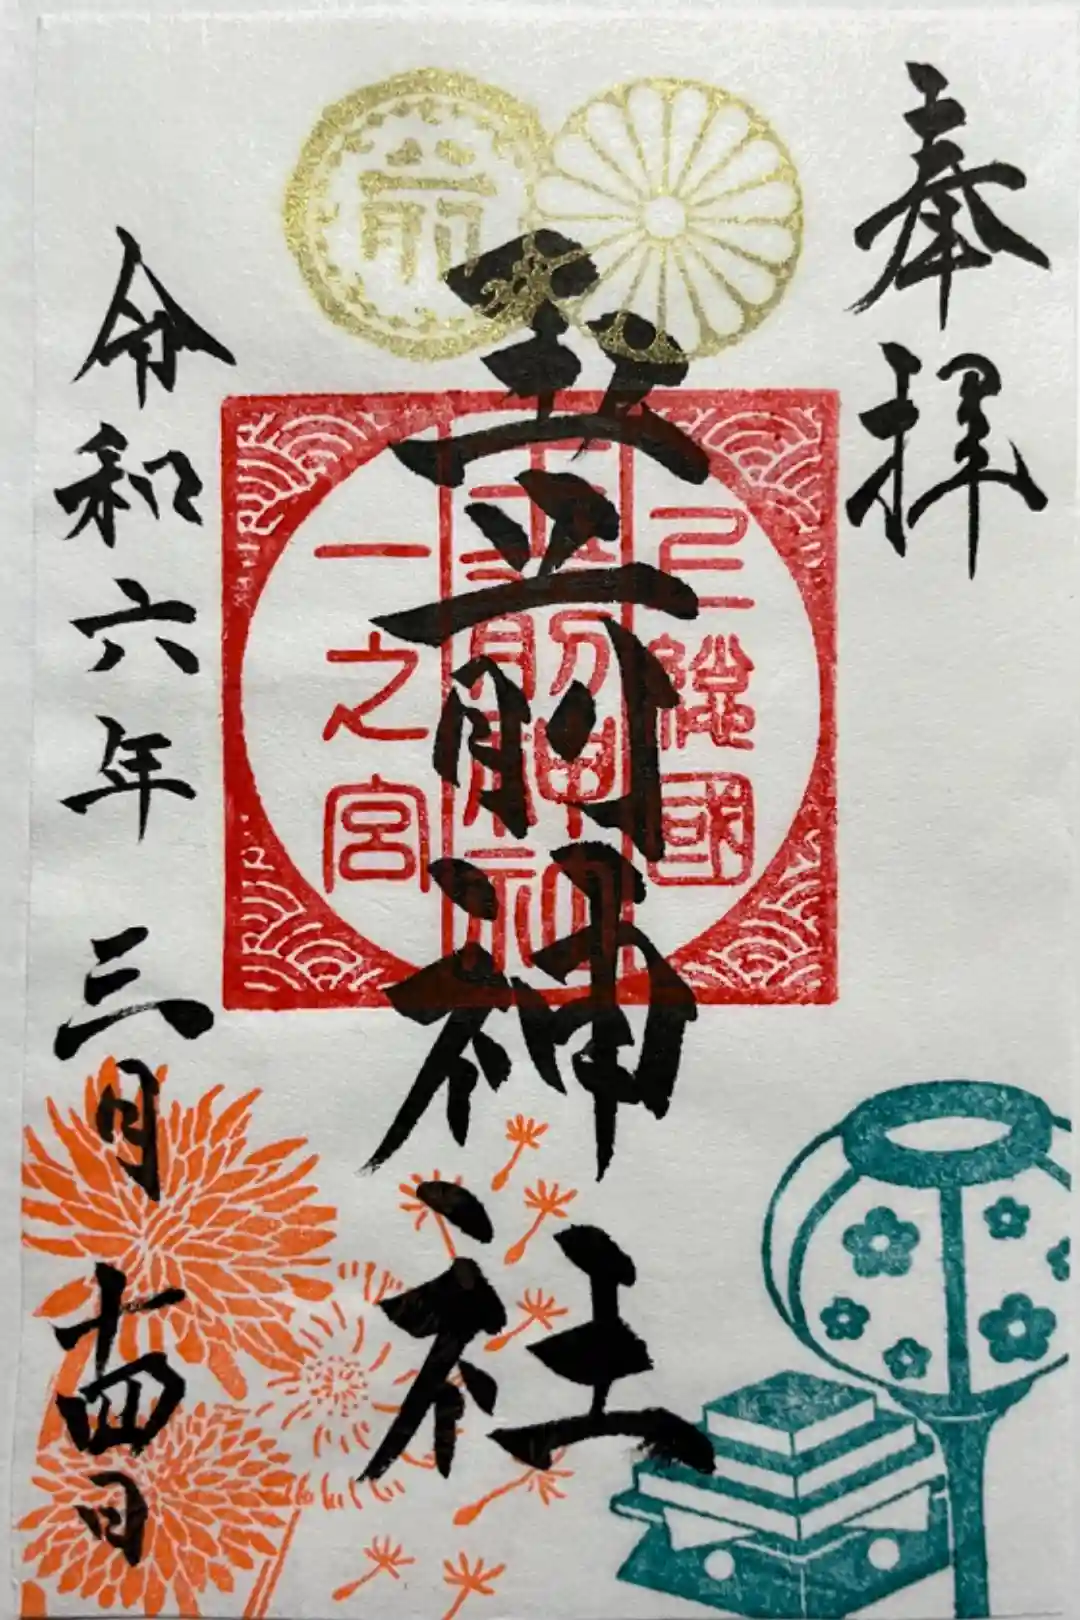 奉拝
上総國
玉前神社
一之宮
玉前神社
令和六年三月十四日